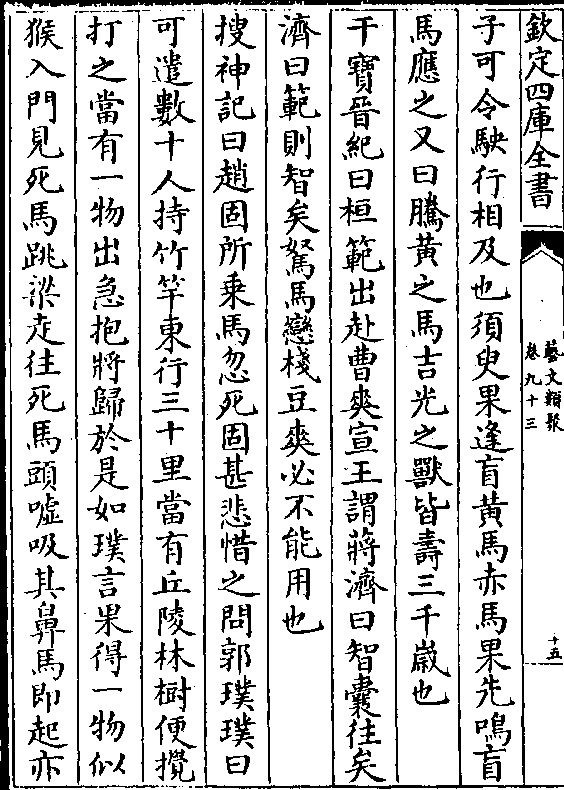 欽定四庫全書
藝文類聚
卷九十三
十五
子可令駛行相及也須臾果逢盲黄馬赤馬果先鳴盲
馬應之又曰騰黄之馬吉光之獸皆壽三千嵗也
干寶晉紀曰桓範出赴曹爽宣王謂蔣濟曰智囊往矣
濟曰範則智矣駑馬戀棧豆爽必不能用也
搜神記曰趙固所乗馬忽死固甚悲惜之問郭璞璞曰
可遣數十人持竹竿東行三十里當有丘陵林樹便攪
打之當有一物出急抱將歸於是如璞言果得一物似
猴入門見死馬跳梁走往死馬頭噓吸其鼻馬即起亦